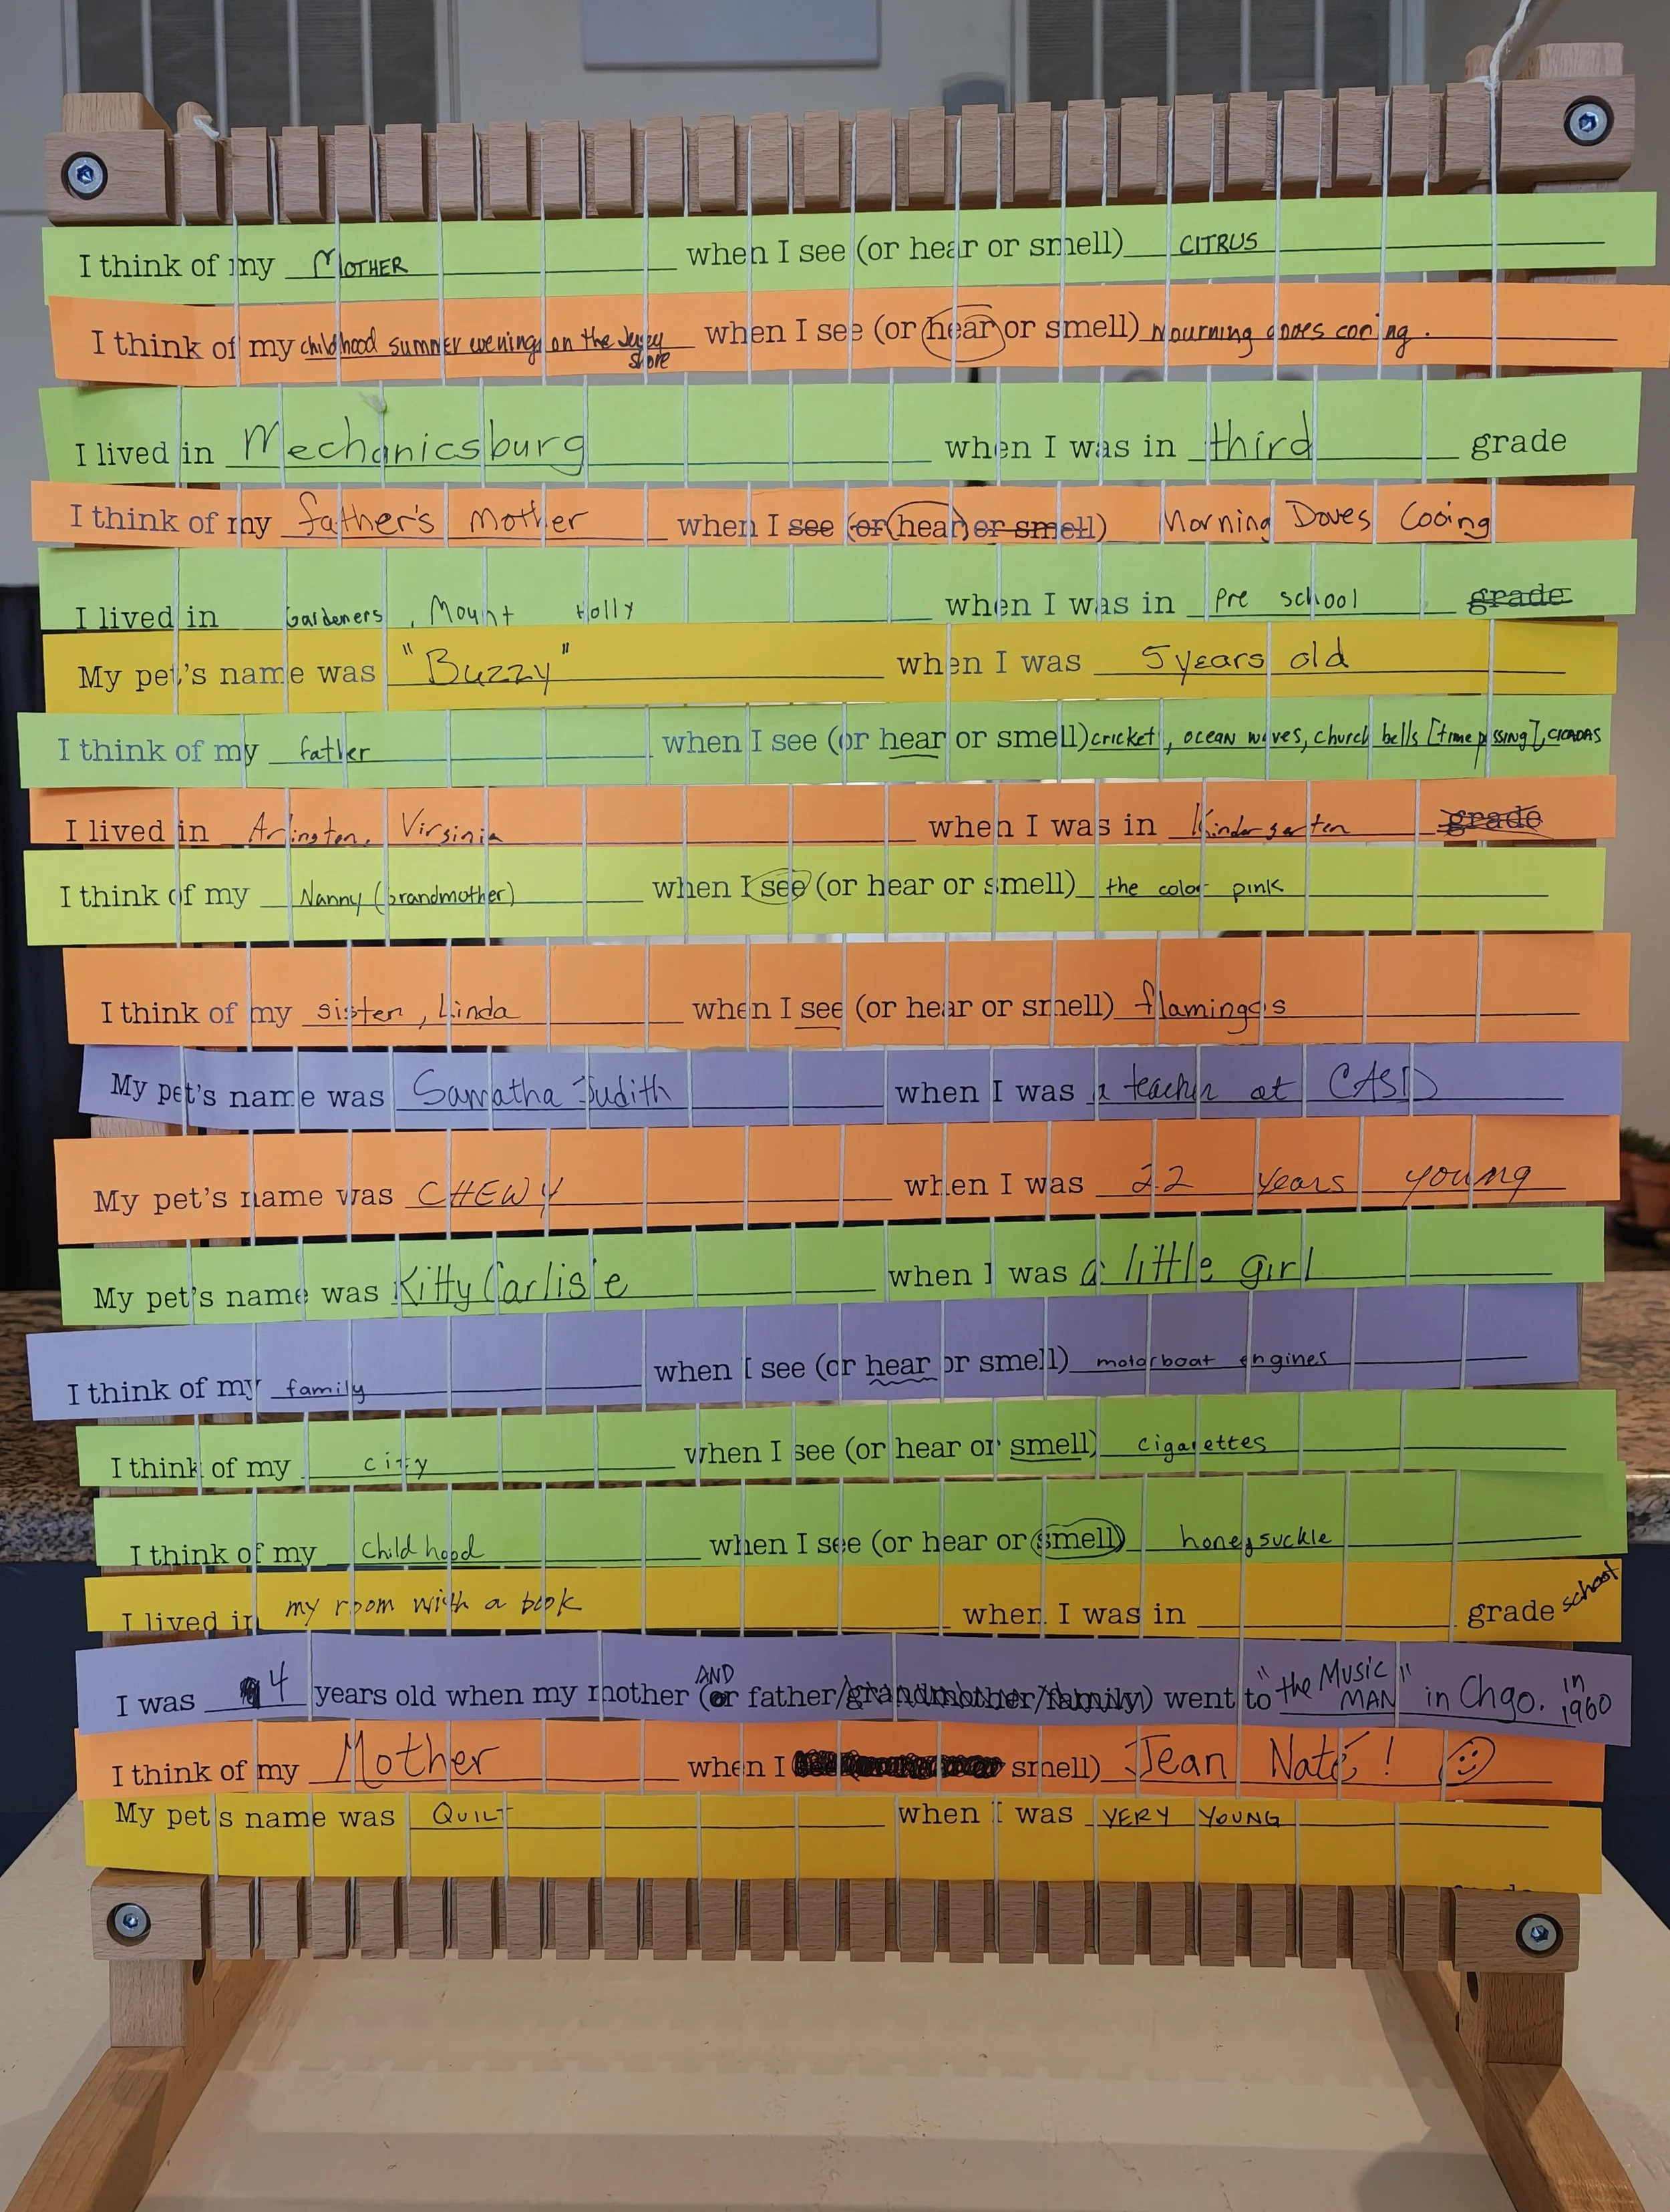 I think of my MOTHER when I see (or hear or smell) CITRUS
I think of my childhood summer evenings on the Jersey shore when I see (or hear or smell) mourning doves cooing.
I lived in Mechanicsburg when I was in third grade
I think of my father's mother when I see (or hear or smell) Morning Doves Cooing
I lived in Gardeners, Mount Holly when I was in pre school grade
My pet's name was "Buzzy" when I was 5 years old
I think of my father when I see (or hear or smell) cricket, ocean waves, church bells [time passing], CICADAS
I lived in Arlington, Virginia when I was in Kindergarten grade
I think of my Nanny (Grandmother) when I see (or hear or smell) the color pink
I think of my sister, Linda when I see (or hear or smell) flamingos
My pet's name was Samatha Judith when I was a teacher at CASD
My pet's name was CHEWY when I was 22 years young
My pet's name was Kitty Carlisle when I was a little girl
I think of my family when I see (or hear or smell) motorboat engines
I think of my city when I see (or hear or smell) cigarettes
I think of my childhood when I see (or hear or smell) honeysuckle
I lived in my room with a book when I was in grade school
I was 4 years old when my mother (or AND father/grandmother/family) went to "the Music MAN" in Chgo. in 1960
I think of my Mother when I smell) Jean Naté! ☺
My pet's name was QUILT when I was VERY YOUNG